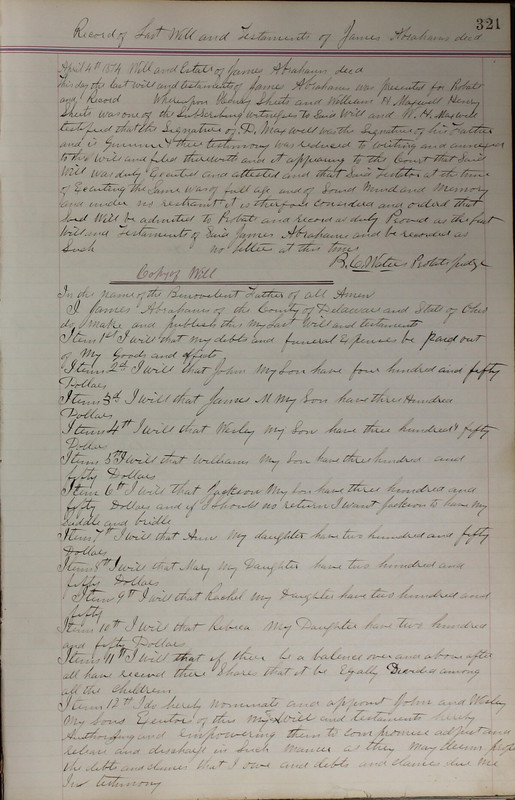 321
Record of Last Will and Testament of James Abrahams decd
April 4th 1874 Will and Estate of James Abrahams decd
This day the last will and testament of James Abrahams was presented for Probate
and Record Whereupon Henry Sheets and William H Maxwell Henry
Sheets was one of the Subscribing witnesses to Said Will and W. H. Maxwell
testified that the Signature of D. Maxwell was the Signature of his Father
and is Genuine & their testimony was reduced to writing and annexed
to this Will and filed therewith and it appearing to the Court that Said
Will was duly Executed and attested and that Said Testator at the time
of Executing the Same was of full age and of Sound Mind and Memory
and under no restraint it is therefore considered and ordered that
Said Will be admitted to Probate and record as duly Proved as the last
Will and Testament of Said James Abrahams and be recorded as
Such no letters at this time
B. C. Waters Probate Judge
Copy of Will
In the name of the Benevolent Father of all Amen
I James Abrahams of the County of Delaware and State of Ohio
do make and publish this my Last Will and testament
Item 1st I will that my debts and funeral Expenses be paid out
of My Goods and effects
Item 2d I will that John My Son have four hundred and fifty
Dollars
Item 3d I will that James M My Son have three Hundred
Dollars
Item 4th I will that Wesley My Son have three hundred & fifty
Dollars
Item 5th I will that William My Son have three hundred and
fifty Dollars
Item 6th I will that Jackson My Son have three hundred and
fifty Dollars and if I Should no return I want Jackson to have my
Saddle and bridle
Item 7th I will that Ann My daughter have two hundred and fifty
Dollars
Item 8th I will that Mary My Daughter have two hundred and
fifty Dollars
Item 9th I will that Rachel my Daughter have two hundred and
fifty
Item 10th I will that Rebeca My Daughter have two hundred
and fifty Dollars
Item 11th I will that if their be a balance over and above after
all have receved there Shares that it be Eqally Divided among
all the Children
Item 12th I do herely nominate and appoint John and Wesley
My Sons Executors of this My Will and testament herely
Authorising and empowering them to compromise adjust and
release and discharge in Such Manner as they May deem proper
the debts and claims that I owe and debts and claims due me
In testimony